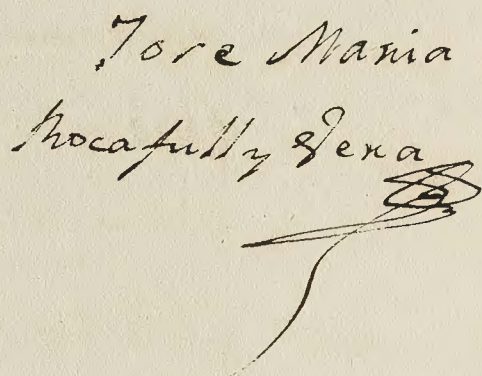 Jose Maria
Rocafull y Vera